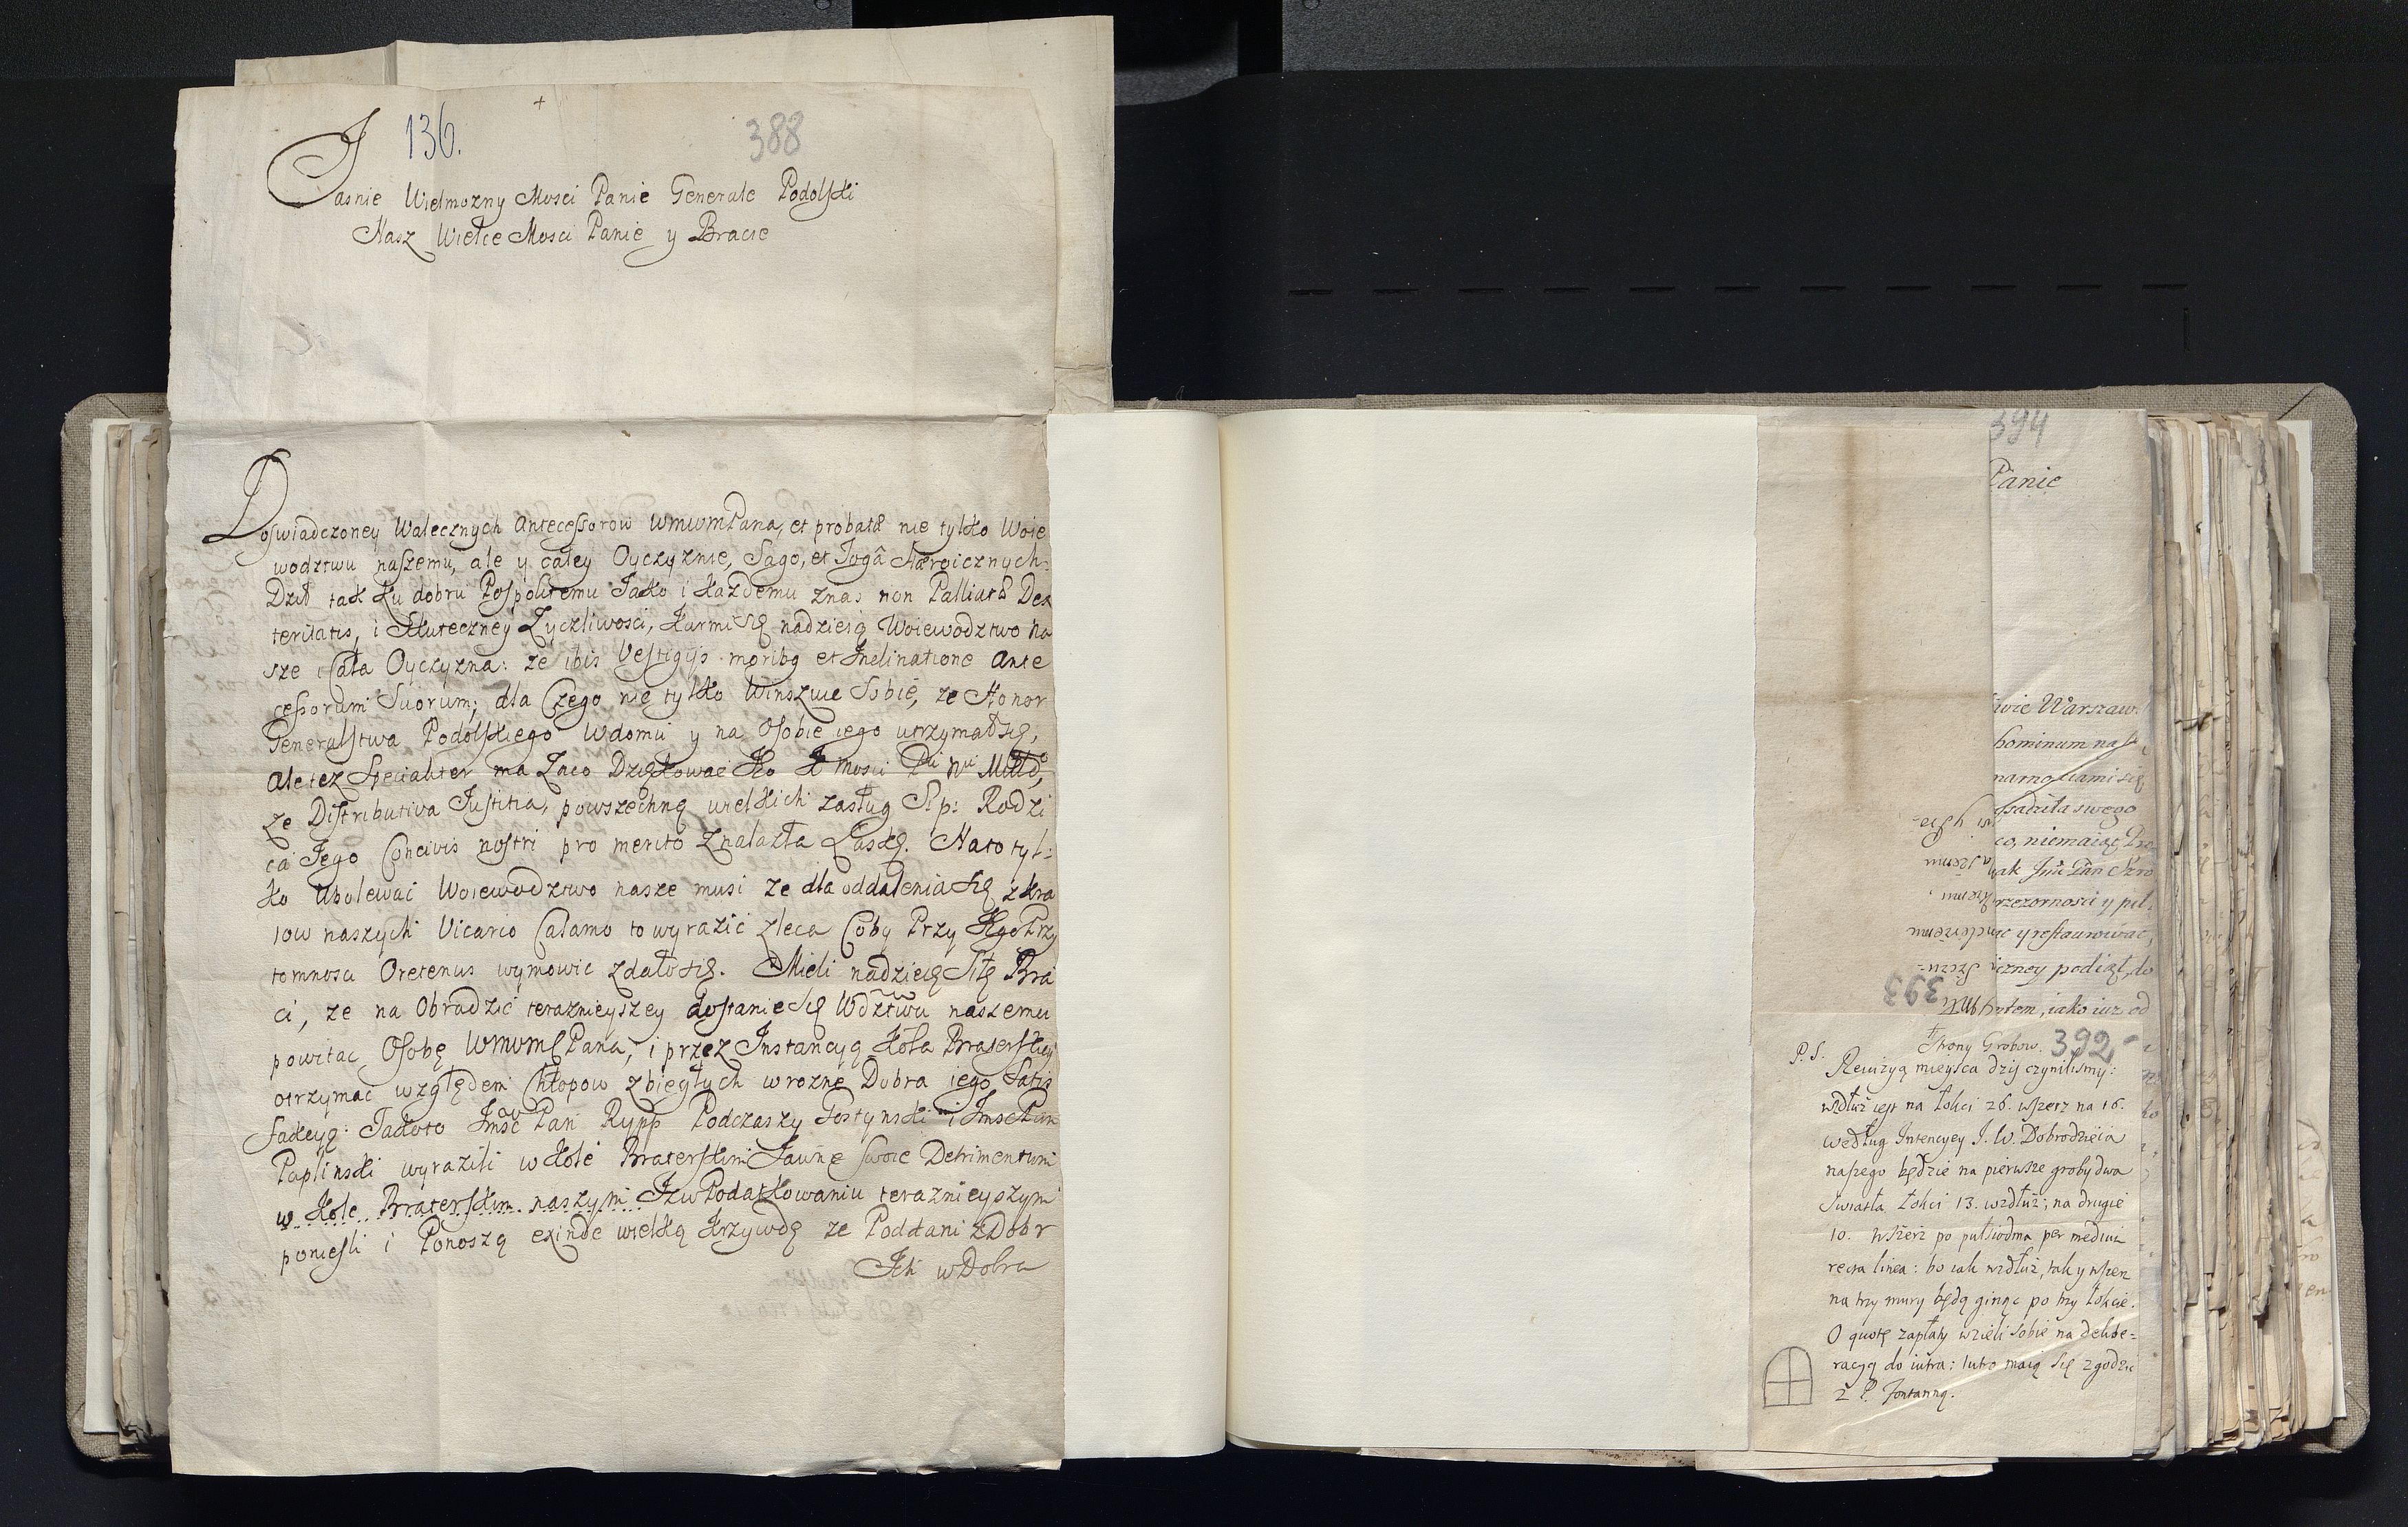 136.
388
Jasnie Wielmozny Mosci Panie Generale Podolski
Nasz Wielce Mosci Panie y Bracie
Doswiadczoney Walecznych Antecessorow WMWMPana, et probatæ nie tylko Woie
wodztwu naszemu, ale y całey Oyczyznie, Sago, et Togâ Hæroicznych
Dził tak ku dobru Pospolitemu Jako i każdemu znas non Palliatæ Dex
teritatis, i Skuteczney Zyczliwosci, karmi się nadzieią Woiewodztwo na
sze i Cała Oyczyzna: ze ibis Vestigijs moribq et Inclinatione Ante
cessorum Suorum; dla Czego nie tylko Winszuie Sobie, ze Honor
Generalstwa Podolskiego Wdomu y na Osobie iego utrzymał się,
Ale tez Specialiter ma Zaco Dziękowac
ze Distributiva Justitia, powszechną wielkich zasług S. p: Rodzi
ca Jego Concivis nostri pro merito Znalazła Łaskę. Na to tyl:
ko Ubolewac Woiewodztwo nasze musi ze dla oddalenia się z kra
iow naszych Vicario Calamo to wyrazic zleca Coby Przy Jego Przy
tomnosci Oretenus wymowic zdało się. Mieli nadzieię Bra
ci, ze na Obradzie teraznieyszey dostanie się Wdztwu naszemu
powitac Osobę WMWMPana, i przez Instancyą Koła Braterskiey
otrzymac względem Chłopow zbiegłych w rozne Dobra iego Satis
fakcyą: Jakoto Jmsc Pan Rypp Podczaszy Gostynski i Jmsc Pan
Paplinski wyrazili w Kole Braterskim Jawne swoie Detrimentum
w Kole Braterskim naszym Iz w Podatkowaniu teraznieyszym
poniesli i Ponoszą exinde wielką krzywdę ze Poddani z Dobr
Ich w Dobra
394
Panie
Warszaw.
hominum na
swego
co, niemaiąc
iak Jmć Pan
y pil
y restaurować,
podiął, do
iako iuz od
393
392
P. S.
Strony Grobow.
Rewizyą mieysca dziś czynilismy:
wzdłuż iest na łokci 26. wszerz na 16.
według Intencyey J. W. Dobrodzieia
naszego będzie na pierwsze groby dwa
swiatła łokci 13. wzdłuż; na drugie
10. wszerz po pułsiodma per mediū
recta linea: bo iak wzdłuż, tak y wszerz
na trzy mury będą ginąc po trzy łokcie.
O quotę zapłaty wzieli sobie na delibe=
racyą do iutra: Iutro maią się zgodzic
z P. Fontanną.